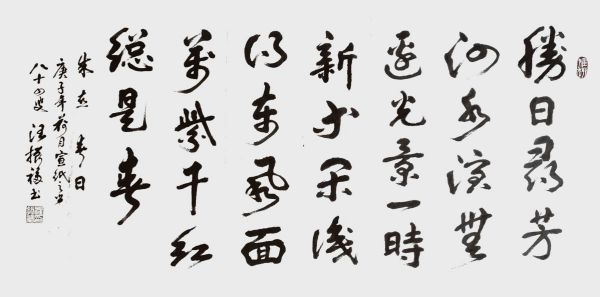 勝日尋芳
泗水濱無
邊光景一時
新等閑識
得東風面
萬紫千紅
總是春
朱熹 春日
庚子年荷月宣紙之乡
八十四叟 汪 福书